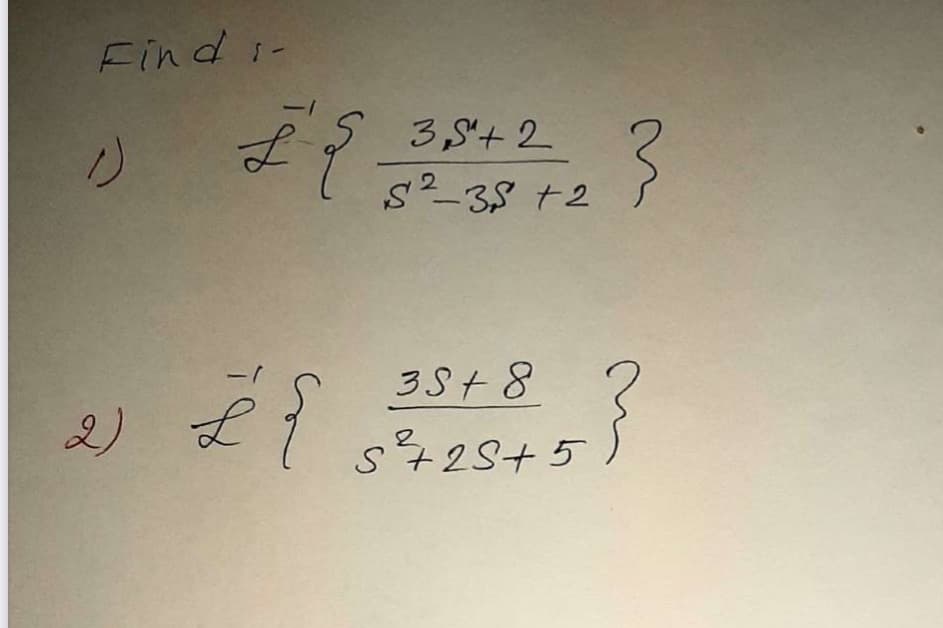 Find :-
1) ℒ⁻¹{ (3s+2)/(s²-3s+2) }
2) ℒ⁻¹{ (3s+8)/(s²+2s+5) }